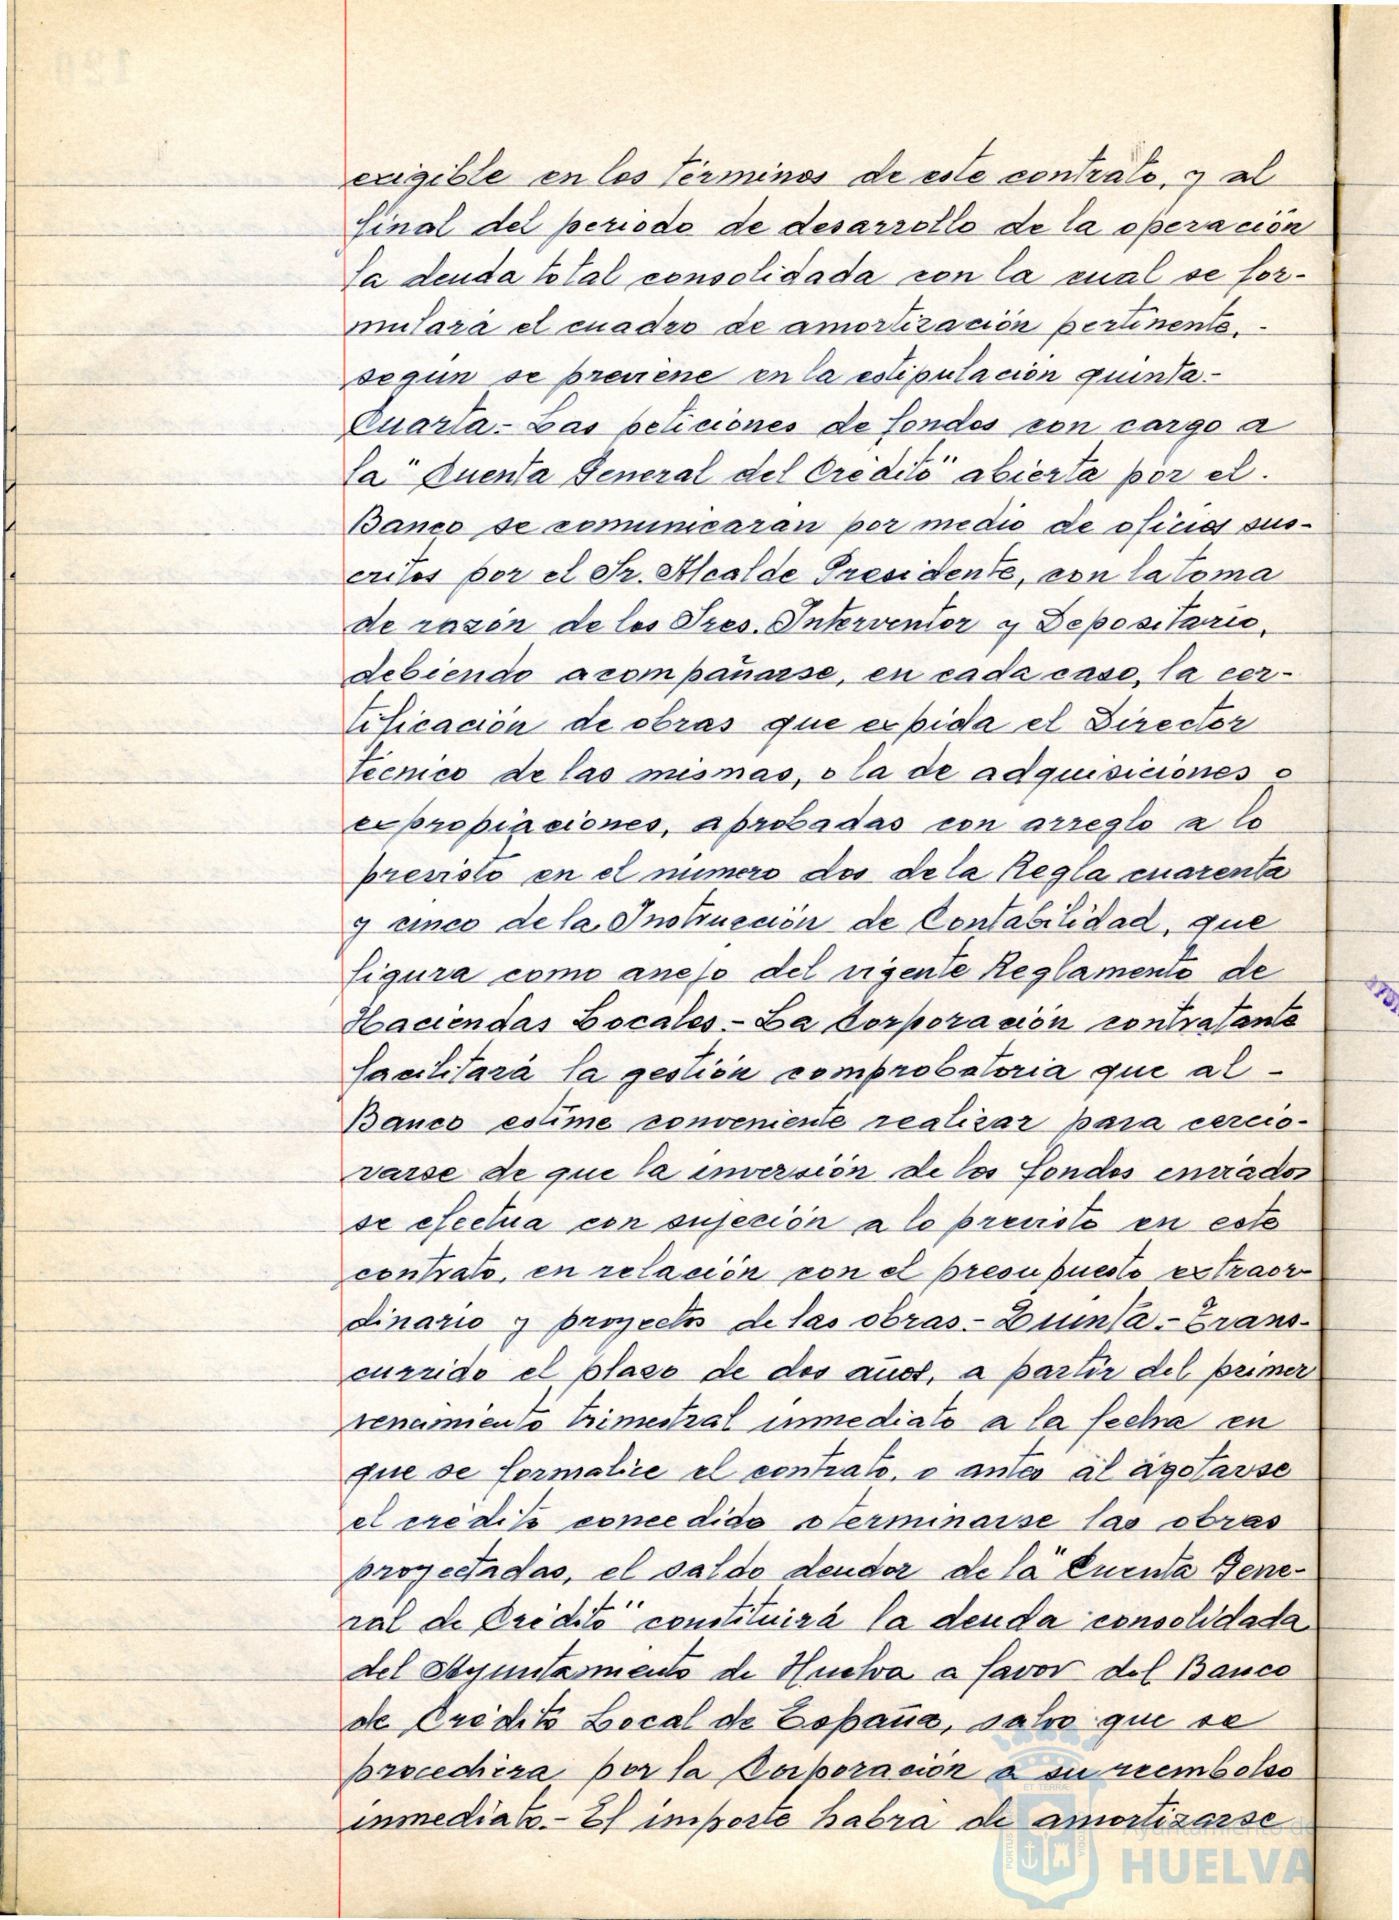 exigible en los términos de este contrato, y al
final del periodo de desarrollo de la operación
la deuda total consolidada con la cual se for-
mulará el cuadro de amortización pertinente, -
según se previene en la estipulación quinta.-
Cuarta.- Las peticiones de fondos con cargo a
la "Cuenta General del Crédito" abierta por el.
Banco se comunicarán por medio de oficios sus-
critos por el Sr. Alcalde Presidente, con la toma
de razón de los Sres. Interventor y Depositario,
debiendo acompañarse, en cada caso, la cer-
tificación de obras que expida el Director
Técnico de las mismas, o la de adquisiciones o
expropiaciones, aprobadas con arreglo a lo
previsto en el número dos de la Regla cuarenta
y cinco de la Instrucción de Contabilidad, que
figura como anejo del vigente Reglamento de
Haciendas Locales.- La Corporación contratante
facilitará la gestión comprobatoria que al -
Banco estime conveniente realizar para cercio-
rarse de que la inversión de los fondos enviados
se efectua con sujeción a lo previsto en este
contrato, en relación con el presupuesto extraor-
dinario y proyectos de las obras.- Quinta.- Trans-
currido el plazo de dos años, a partir del primer
vencimiento trimestral inmediato a la fecha en
que se formalice el contrato, o antes al agotarse
el crédito concedido o terminarse las obras
proyectadas, el saldo deudor de la "Cuenta Gene-
ral de Crédito" constituirá la deuda consolidada
del Ayuntamiento de Huelva a favor del Banco
de Crédito Local de España, salvo que se
procediera por la Corporación a su reembolso
inmediato.- El importe habrá de amortizarse
Ayuntamiento de
HUELVA